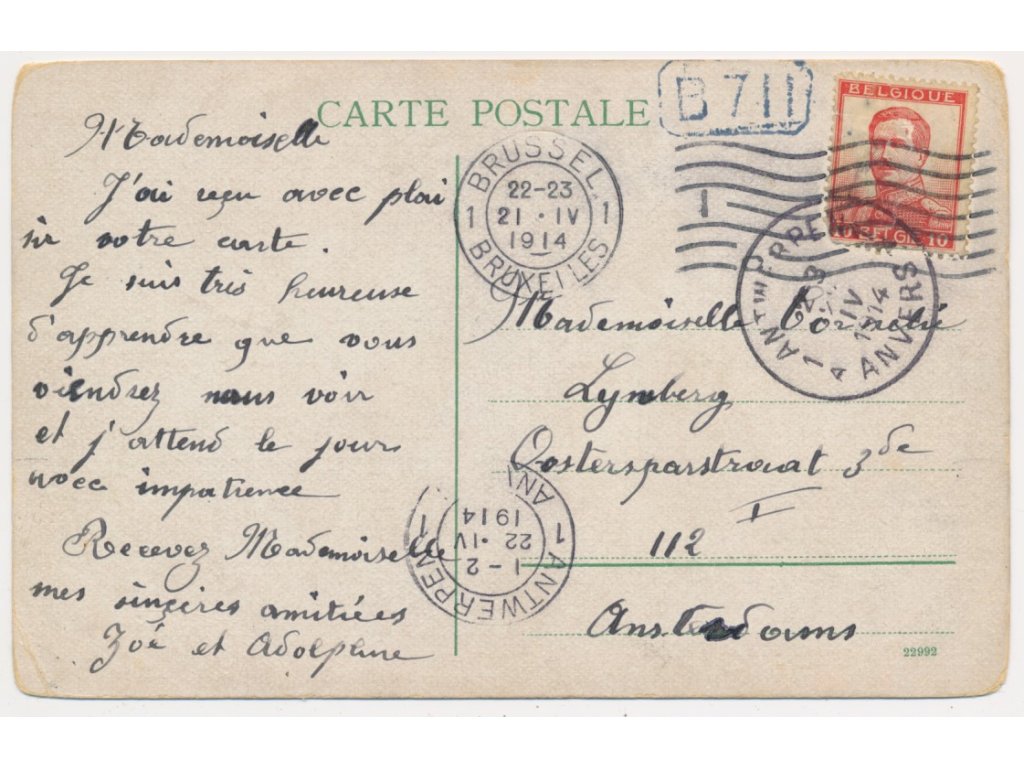 CARTE POSTALE
B 711
BELGIQUE
BELGIË
10 10
Mademoiselle
J'ai reçu avec plai
sir votre carte.
Je suis très heureuse
d'apprendre que vous
viendrez nous voir
et j'attend le jours
avec impatience
Recevez Mademoiselle
mes sinçères amitiées
Zoé et Adolphine
BRUSSEL
1 22-23 1
21 · IV
1914
BRUXELLES
1
ANTWERPEN
1 ANVERS
IV
1914
4
Mademoiselle Cornelie
Lymberg
Oostersparstraat 3de
I
112
Amsterdams
ANTWERPEN
1 1-2 1
22 · IV
1914
ANV
22992